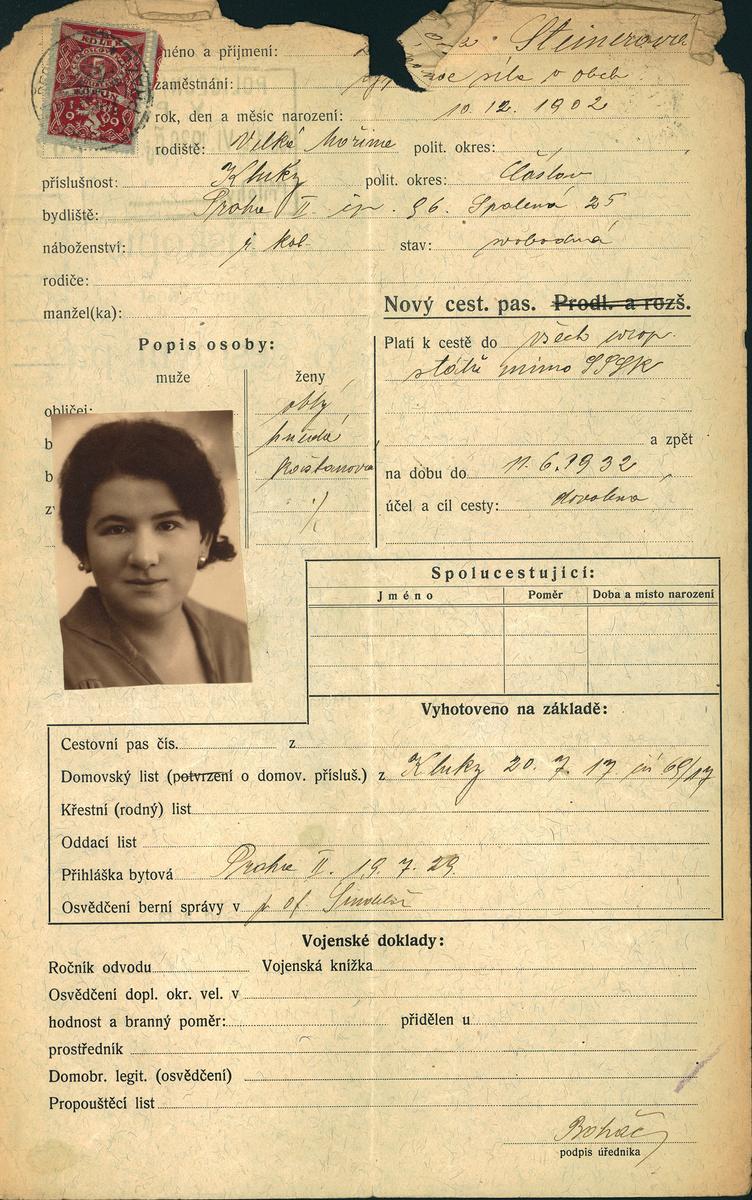 KOLEK
5
KORUN
1919
jméno a příjmení: Steinerova
zaměstnání: síla v obch.
rok, den a měsíc narození: 10. 12. 1902
rodiště: Velké polit. okres:
příslušnost: Kluky polit. okres: Čáslav
bydliště: Praha II. čp. 96. Spálená 25
náboženství: stav: svobodná
rodiče:
manžel(ka):
Nový cest. pas. Prodl. a rozš.
Popis osoby:
muže ženy
Platí k cestě do všech evrop.
států mimo SSSR
obličej: oblý
hnědá
kaštanova
a zpět
na dobu do 11. 6. 1932
účel a cíl cesty: dovolená
Spolucestující:
Jméno Poměr Doba a místo narození
Vyhotoveno na základě:
Cestovní pas čís. z
Domovský list (potvrzení o domov. přísluš.) z Kluky 20. 7. 17. čís 69/17
Křestní (rodný) list
Oddací list
Přihláška bytová Praha II. 19. 7. 29
Osvědčení berní správy v
Vojenské doklady:
Ročník odvodu Vojenská knížka
Osvědčení dopl. okr. vel. v
hodnost a branný poměr: přidělen u
prostředník
Domobr. legit. (osvědčení)
Propouštěcí list
Boháč
podpis úředníka